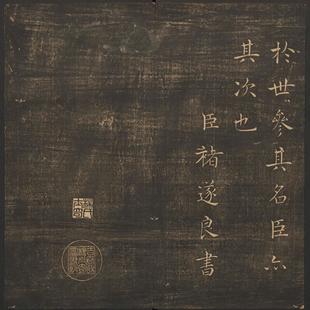 於世參其名臣亦
其次也
臣褚遂良書